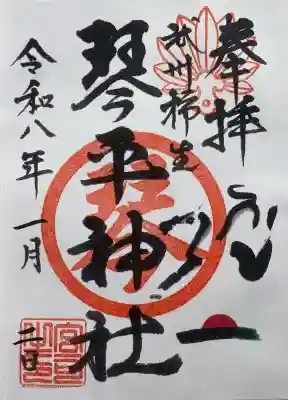 奉拝
武州柿生
琴平神社
令和八年一月
二日